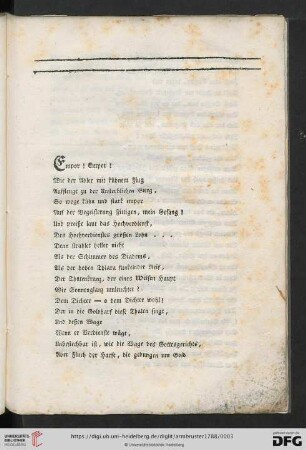 Empor! Empor!
Wie der Adler mit kühnem Flug
Aufsteigt zu der Unsterblichen Burg,
So wage kühn und stark empor
Auf der Begeisterung Fittigen, mein Gesang!
Und preise laut das Hochverdienst,
Des Hochverdienstes großen Lohn . . .
Denn strahlet heller nicht
Als der Schimmer des Diadems,
Als der hohen Thiara funkelnder Reif,
Der Thatenkranz, der eines Weisen Haupt
Wie Sonnenglanz umleuchtet?
Dem Dichter — o dem Dichter wohl!
Der in die Goldharf diese Thaten singt,
Und dessen Wage
Wenn er Verdienste wägt,
Unbestechbar ist, wie die Wage des Gottesgerichts,
Aber Fluch der Harfe, die gedungen um Gold
UNIVERSITÄTS-BIBLIOTHEK HEIDELBERG
https://digi.ub.uni-heidelberg.de/diglit/armbruster1788/0003
© Universitätsbibliothek Heidelberg
gefördert durch die
DFG